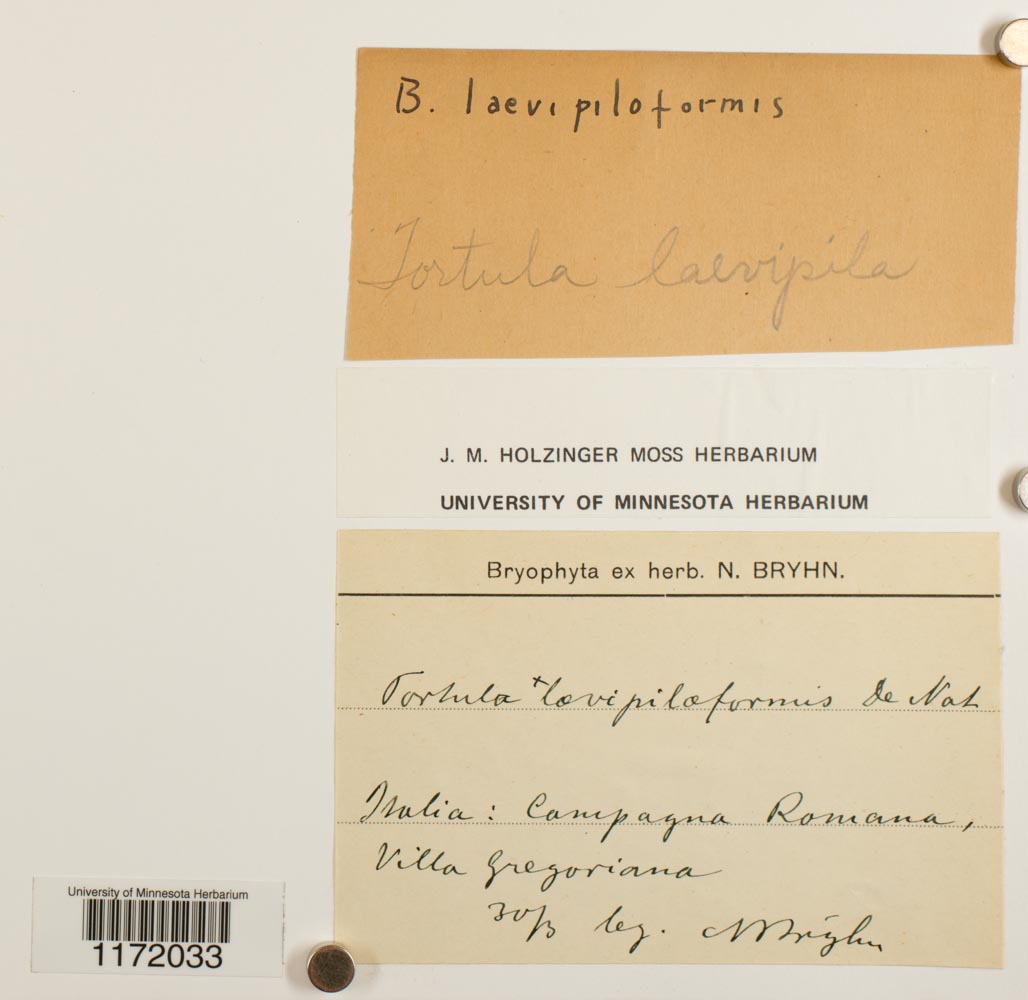 B. laevipiloformis
Tortula laevipila
J. M. HOLZINGER MOSS HERBARIUM
UNIVERSITY OF MINNESOTA HERBARIUM
Bryophyta ex herb. N. BRYHN.
Tortula + lævipilæformis De Not
Italia: Campagna Romana,
Villa Gregoriana
30/3 leg. N Bryhn
University of Minnesota Herbarium
1172033